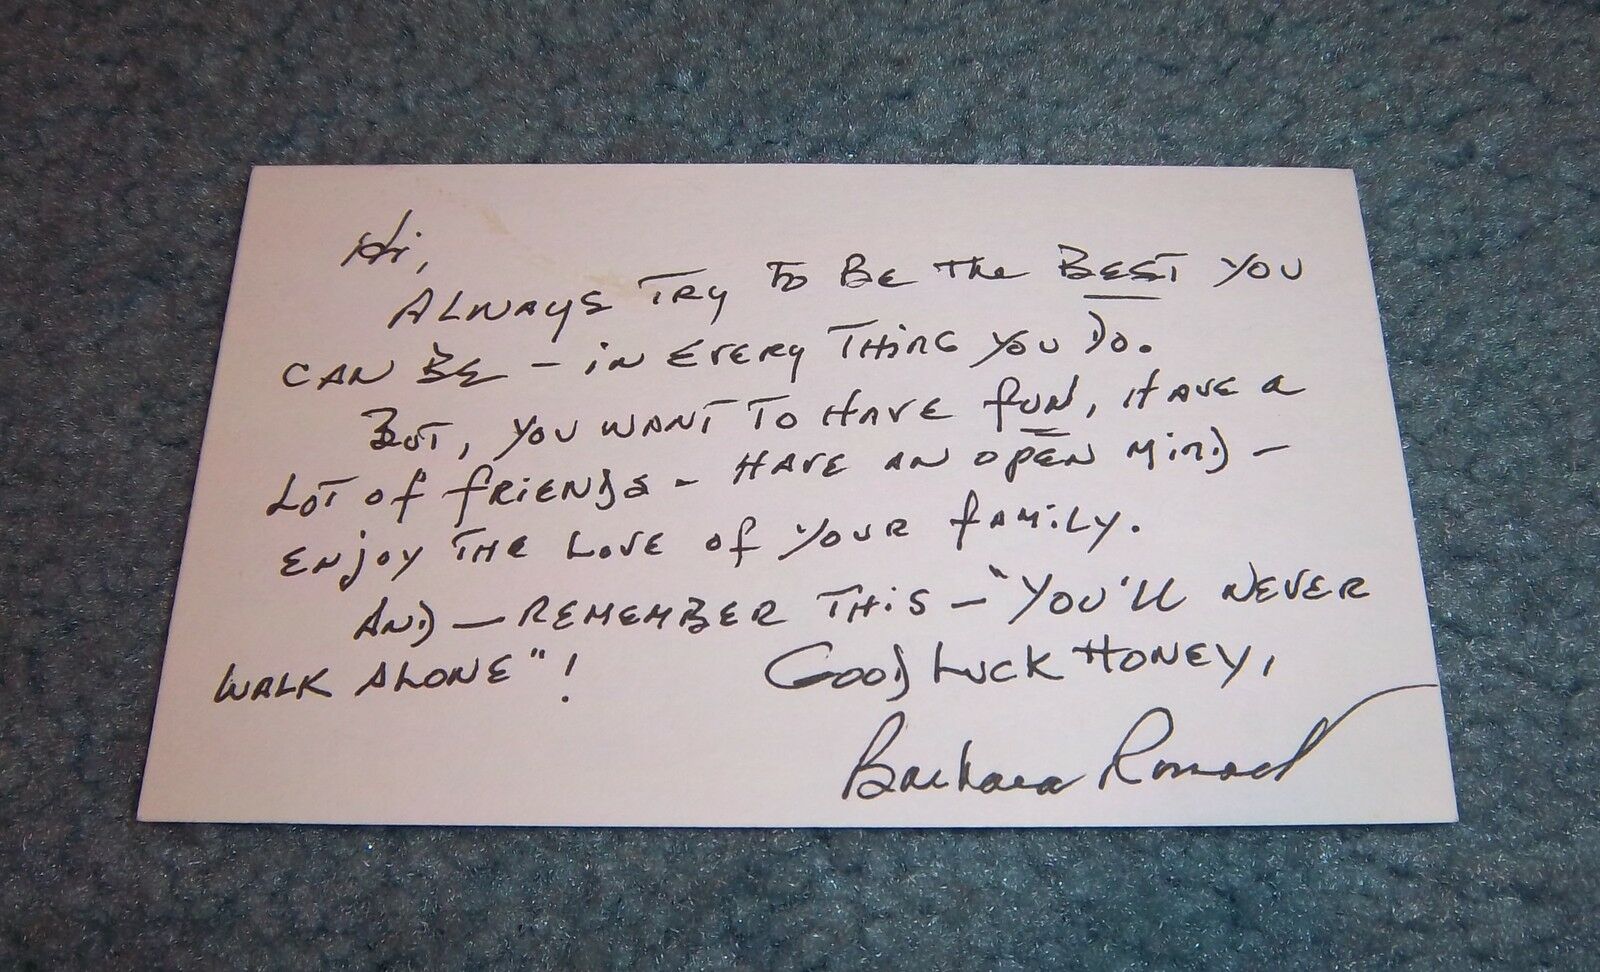 Hi,
ALWAYS TRY TO BE THE BEST YOU
CAN BE – IN EVERY THING YOU DO.
BUT, YOU WANT TO HAVE FUN, HAVE A
LOT OF FRIENDS – HAVE AN OPEN MIND –
ENJOY THE LOVE OF YOUR FAMILY.
AND – REMEMBER THIS – "YOU'LL NEVER
WALK ALONE"!
GOOD LUCK HONEY,
Barbara